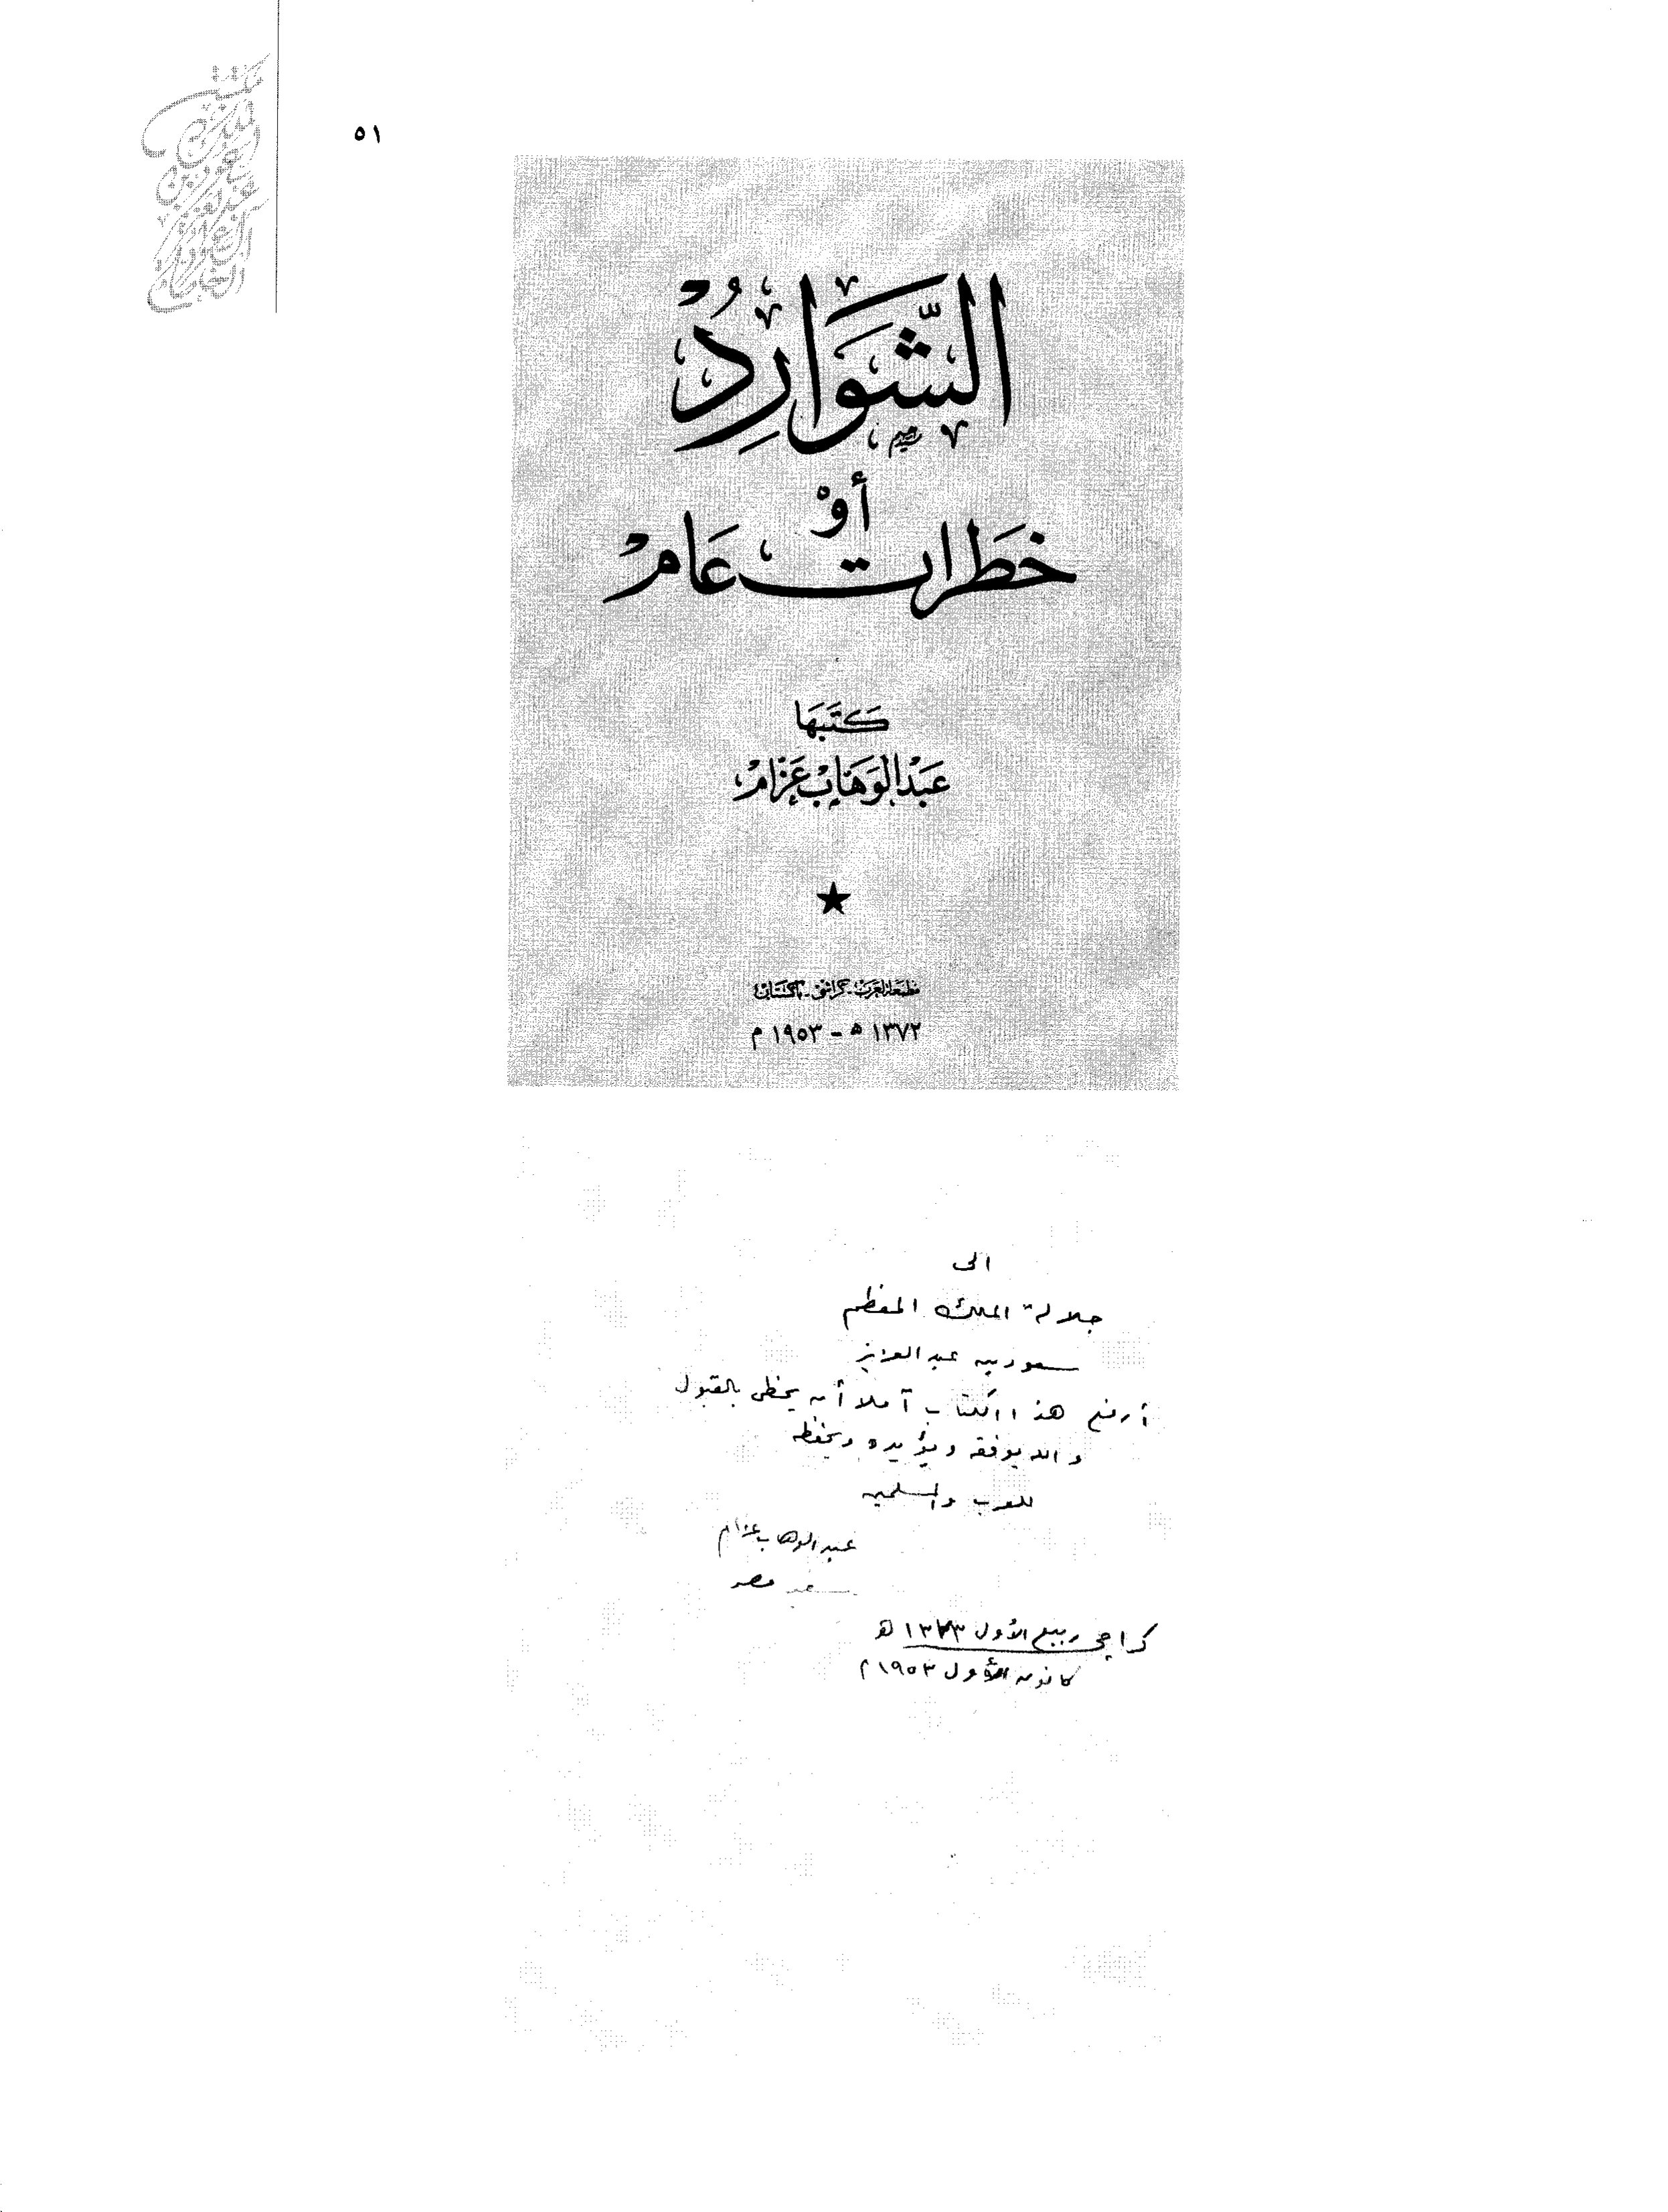 مكتبة الملك سعود بن عبد العزيز آل سعود الخاصة
٥١
الشَّوَارِدُ
أَوْ
خَطَرات عَامْ
كَتَبَهَا
عَبْدالوَهَاب عَزَّامْ
مطبعة العرب - كراتشي - باكستان
١٣٧٢ ه - ١٩٥٣ م
الى
جلالة الملك المعظم
سعود بن عبد العزيز
أرفع هذا الكتاب آملا أن يحظى بالقبول
والله يوفقه ويؤيده ويحفظه
للعرب والمسلمين
عبد الوهاب عزام
سفير مصر
كراچى ربيع الأول ١٣٧٣ هـ
كانون الأول ١٩٥٣ م